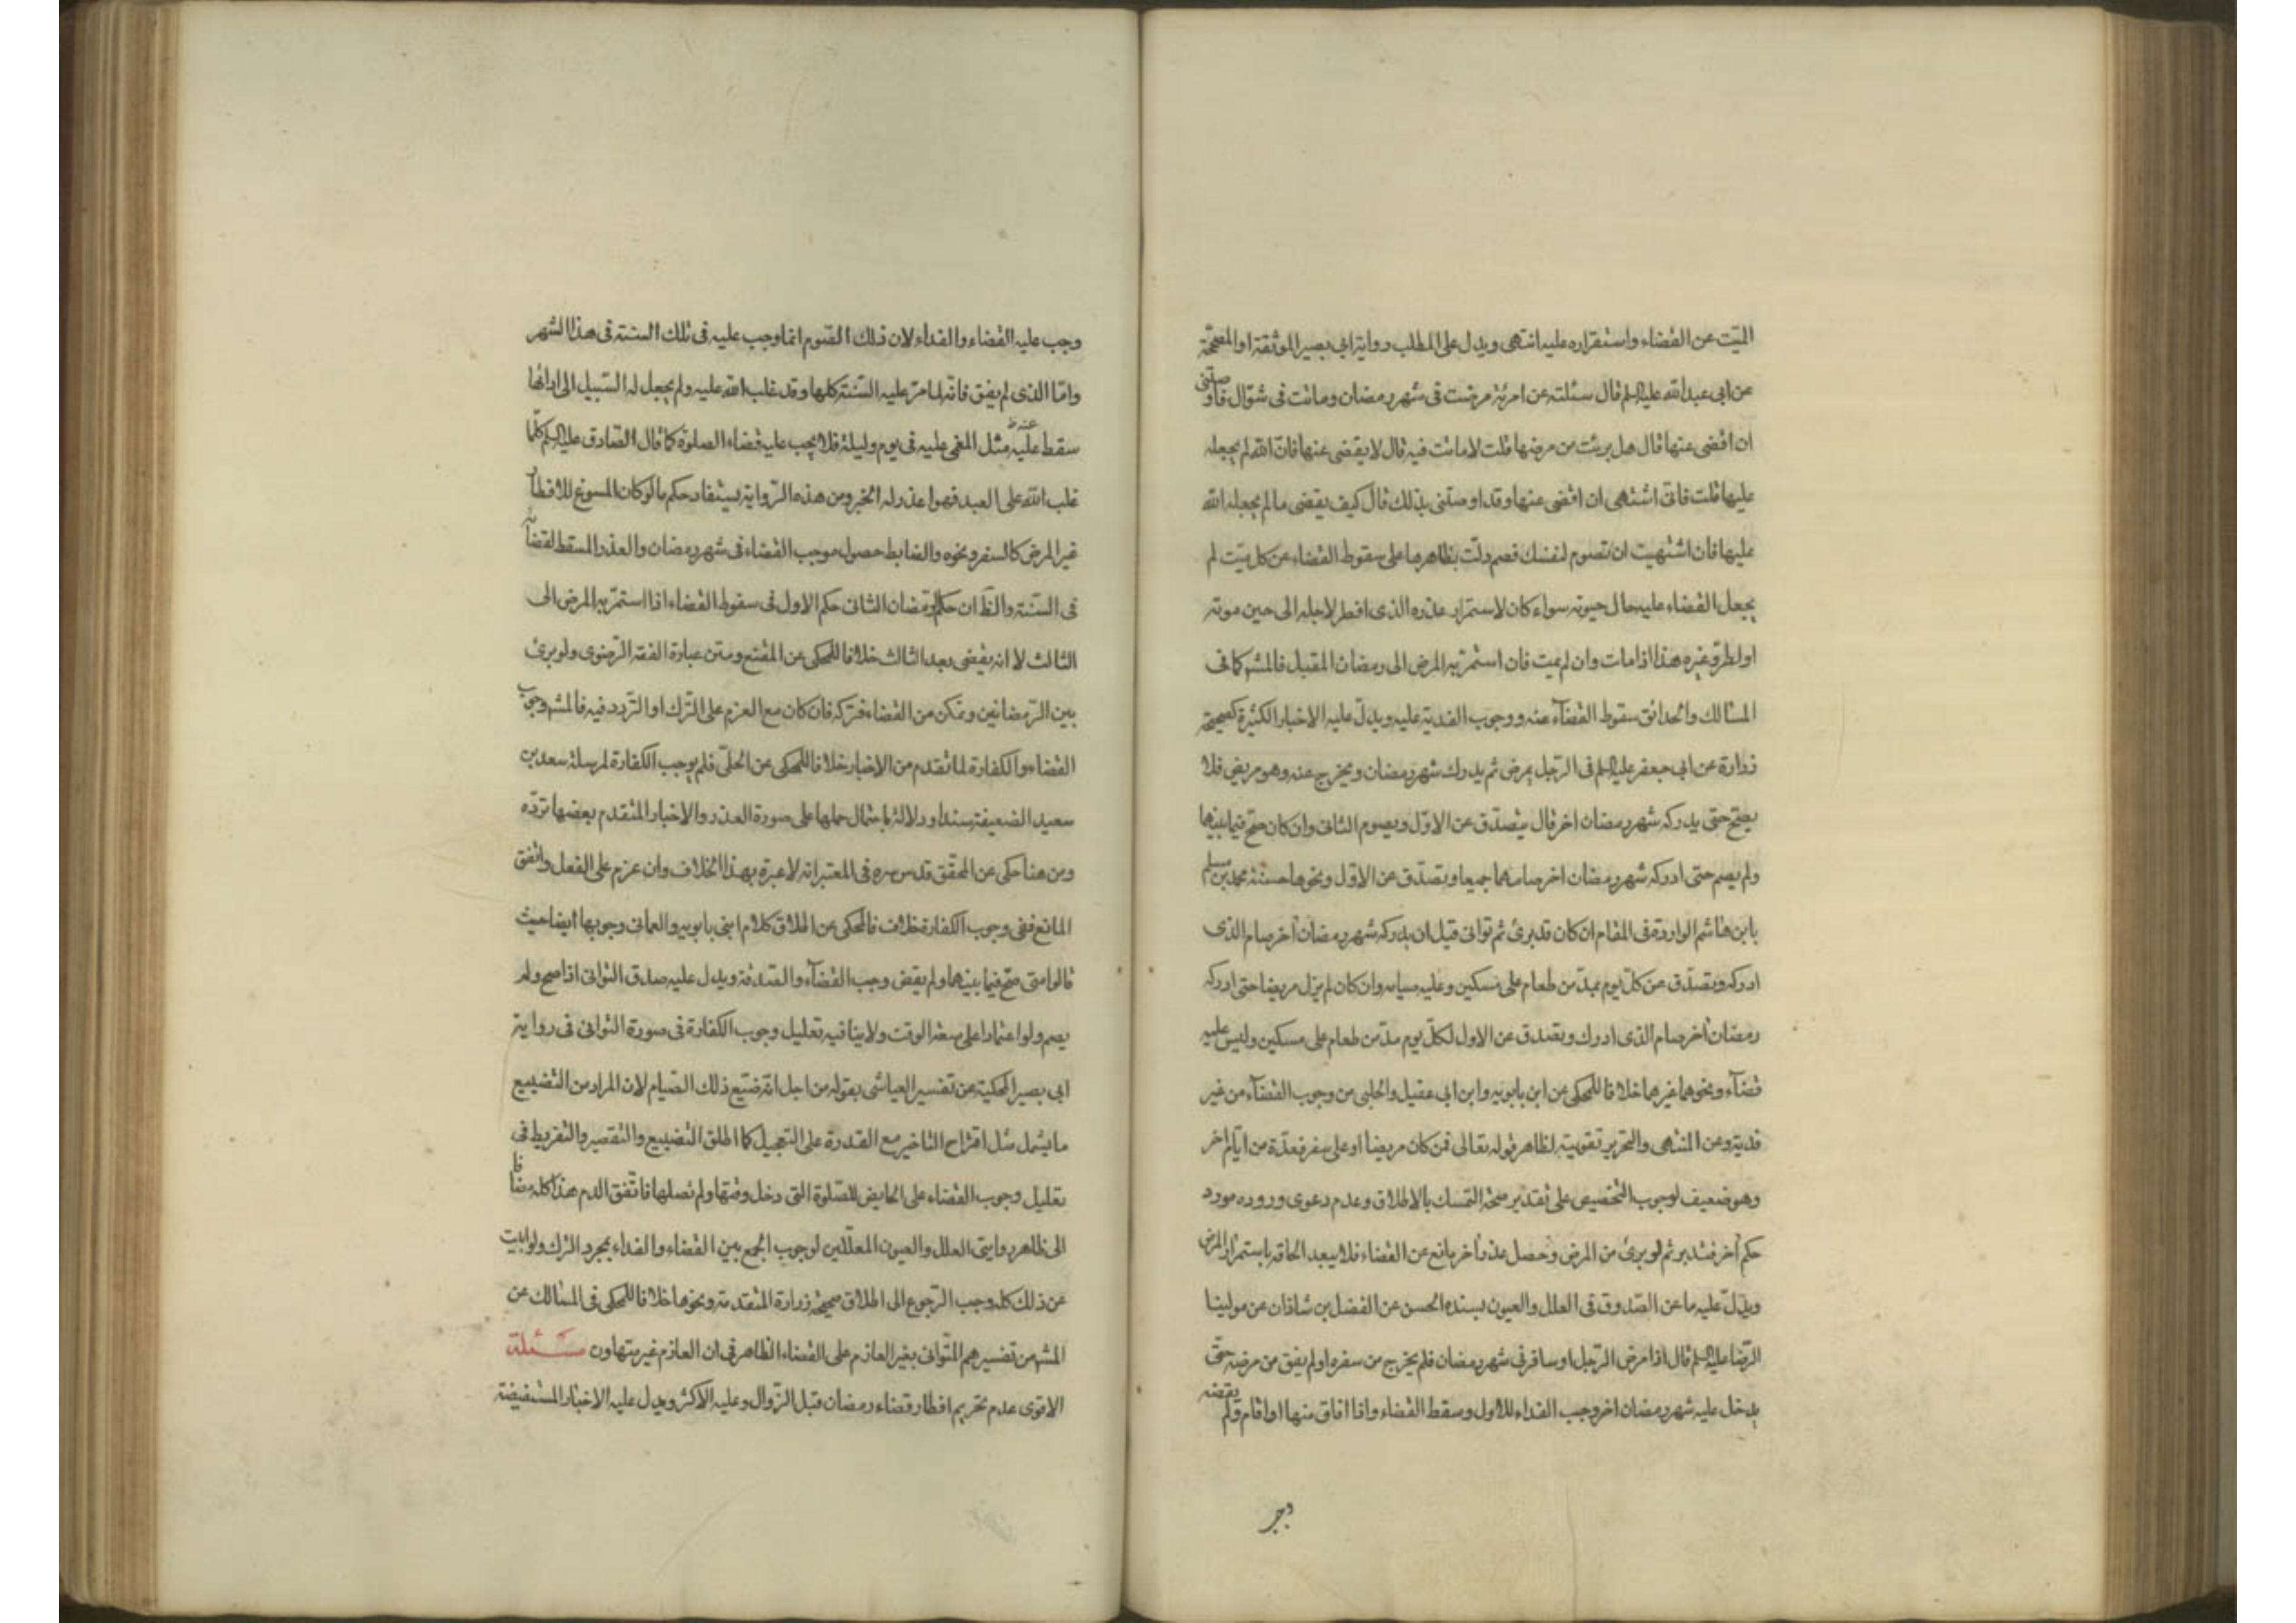 الميّت عن القضاء واستقراره عليه انتهى ويدل على المطلب رواية ابي بصير الموثقة او المصحّحة
عن ابي عبدالله عليه‌السلم قال سئلته عن امرئة مرضت فى شهر رمضان وماتت فى شوّال فاوصتنى
ان اقضى عنها قال هل برئت من مرضها قلت لا ماتت فيه قال لا يقضى عنها فانّ الله لم يجعله
عليها قلت فانّى اشتهى ان اقضى عنها وقد اوصتنى بذلك قال كيف يقضى ما لم يجعله الله
عليها فان اشتهيت ان تصوم لنفسك فصم دلّت بظاهرها على سقوط القضاء عن كل ميّت لم
يجعل القضاء عليه حال حيوته سواء كان لاستمرار عذره الذى افطر لاجله الى حين موته
او لطروّ غيره هذا اذا مات وان لم يمت فان استمرّ به المرض الى رمضان المقبل فالمشهـ كما فى
المسالك والحدائق سقوط القضآء عنه ووجوب الفدية عليه ويدلّ عليه الاخبار الكثيرة كصحيحة
زرارة عن ابى جعفر عليه‌السلم فى الرّجل يمرض ثم يدرك شهر رمضان ويخرج عنه وهو مريض فلا
يصحّ حتى يدركه شهر رمضان اخر قال يتصدّق عن الاوّل ويصوم الثانى وان كان صحّ فيما بينهما
ولم يصم حتى ادركه شهر رمضان اخر صامهما جميعا وتصدّق عن الاوّل ونحوها حسنة محمد بن مسلم
بابن هاشم الواردة فى المقام ان كان قد برئ ثم توانى قبل ان يدركه شهر رمضان آخر صام الذى
ادركه وتصدّق عن كلّ يوم بمدّ من طعام على مسكين وعليه صيامه وان كان لم يزل مريضا حتى ادركه
رمضان آخر صام الذى ادرك وتصدق عن الاول لكلّ يوم مدّ من طعام على مسكين وليس عليه
قضآء ونحوهما غيرهما خلافا للمحكى عن ابن بابويه وابن ابى عقيل والحلبى من وجوب القضآء من غير
فدية وعن المنتهى والتحرير تقويته لظاهر قوله تعالى فمن كان مريضا او على سفر فعدّة من ايّام اخر
وهو ضعيف لوجوب التخصيص على تقدير صحة التمسك بالاطلاق وعدم دعوى وروده مورد
حكم آخر فتدبر ثم لو برئ من المرض وحصل عذر آخر مانع عن القضاء فلا يبعد الحاقه باستمرار المرض
ويدلّ عليه ما عن الصّدوق فى العلل والعيون بسنده الحسن عن الفضل بن شاذان عن مولينا
الرّضا عليه‌السلم قال اذا مرض الرّجل او سافر فى شهر رمضان فلم يخرج من سفره او لم يفق من مرضه حتى
يدخل عليه شهر رمضان اخر وجب الفداء للاول وسقط القضاء واذا افاق منها او اقام ولم يقضه
وجب عليه القضاء والفداء لان ذلك الصّوم انما وجب عليه فى تلك السنة فى هذا الشهر
وامّا الذى لم يفق فانّه لما مرّ عليه السّنة كلها وقد غلب الله عليه ولم يجعل له السّبيل الى ادائها
سقط عليه عنه ظ مثل المغمى عليه فى يوم وليلة فلا يجب عليه قضاء الصلوة كما قال الصّادق عليه‌السلم كلّما
غلب الله على العبد فهو اعذر له الخبر ومن هذه الرّواية يستفاد حكم ما لو كان المسوغ للافطار
غير المرض كالسفر ونحوه والضابط حصول موجب القضاء فى شهر رمضان والعذر المسقط لقضائه
فى السّنة والظّ ان حكم رمضان الثانى حكم الاول فى سقوط القضاء اذا استمرّ به المرض الى
الثالث لا انه يقضى بعد الثالث خلافا للمحكى عن المقنع ومتن عبارة الفقه الرّضوى ولو برئ
بين الرّمضانين وتمكن من القضاء فتركه فان كان مع العزم على الترك او التردد فيه فالمشهـ وجوب
القضاء والكفارة لما تقدم من الاخبار خلافا للمحكى عن الحلّى فلم يوجب الكفارة لمرسلة سعد بن
سعيد الضعيفة سندا ودلالة باحتمال حملها على صورة العذر والاخبار المتقدم بعضها تردّه
ومن هنا حكى عن المحقّق قدس سره فى المعتبر انه لا عبرة بهذا الخلاف وان عزم على الفعل واتفق
المانع ففى وجوب الكفارة خلاف فالمحكى عن اطلاق كلام ابنى بابويه والعمانى وجوبها ايضا حيث
قالوا متى صحّ فيما بينهما ولم يقض وجب القضآء والصّدقة ويدل عليه صدق التوانى اذا صح ولم
يصم ولو اعتمادا على سعة الوقت ولا ينافيه تعليل وجوب الكفارة فى صورة التوانى فى رواية
ابى بصير المحكية عن تفسير العياشى بقوله من اجل انّه ضيّع ذلك الصّيام لان المراد من التضييع
ما يشمل مثل اقتراح التاخير مع القدرة على التعجيل كما اطلق التضييع والتقصير والتفريط فى
تعليل وجوب القضاء على الحايض للصّلوة التى دخل وقتها ولم تصلها فاتّفق الدم هذا كله مضافا
الى ظاهر روايتى العلل والعيون المعللّتين لوجوب الجمع بين القضاء والفداء بمجرد الترك ولو ابيت
عن ذلك كله وجب الرّجوع الى اطلاق صحيحة زرارة المتقدمة ونحوها خلافا للمحكى فى المسالك عن
المشهـ من تفسيرهم المتوانى بغير العازم على القضاء الظاهر فى ان العازم غير متهاون مسئلة
الاقوى عدم تحريم افطار قضاء رمضان قبل الزّوال وعليه الاكثر ويدل عليه الاخبار المستفيضة